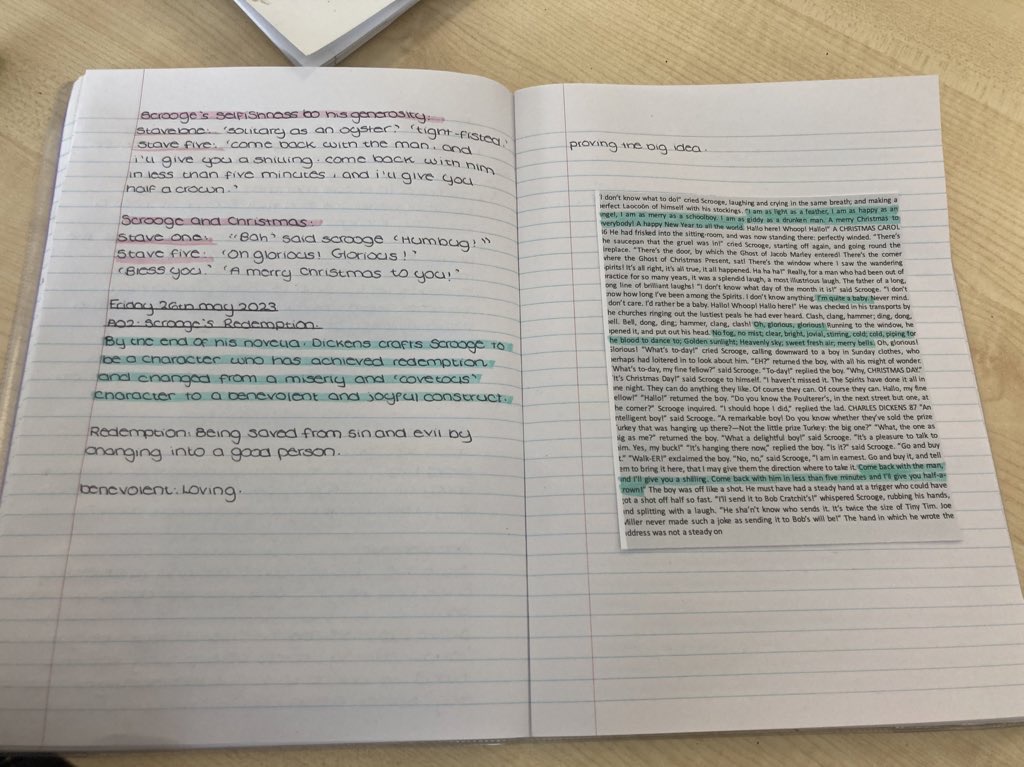 Scrooge's selfishness to his generosity:
Stave one: 'solitary as an oyster' 'tight-fisted'
Stave five: 'come back with the man, and
i'll give you a shilling. come back with him
in less than five minutes, and i'll give you
half a crown.'
Scrooge and Christmas:
Stave one: "Bah" said scrooge 'Humbug!"
Stave five: 'oh glorious! Glorious!'
'Bless you.' 'A merry Christmas to you!'
Friday 26th may 2023
A02: Scrooge's Redemption.
By the end of his novella, Dickens crafts Scrooge to
be a character who has achieved redemption
and changed from a miserly and 'covetous'
character to a benevolent and joyful construct.
Redemption: Being saved from sin and evil by
changing into a good person.
benevolent: Loving.
proving the big idea.
"I don't know what to do!" cried Scrooge, laughing and crying in the same breath; and making a
perfect Laocoön of himself with his stockings. "I am as light as a feather, I am as happy as an
angel, I am as merry as a schoolboy. I am as giddy as a drunken man. A merry Christmas to
everybody! A happy New Year to all the world. Hallo here! Whoop! Hallo!" A CHRISTMAS CAROL
6 He had frisked into the sitting-room, and was now standing there: perfectly winded. "There's
the saucepan that the gruel was in!" cried Scrooge, starting off again, and going round the
fireplace. "There's the door, by which the Ghost of Jacob Marley entered! There's the corner
where the Ghost of Christmas Present, sat! There's the window where I saw the wandering
Spirits! It's all right, it's all true, it all happened. Ha ha ha!" Really, for a man who had been out of
practice for so many years, it was a splendid laugh, a most illustrious laugh. The father of a long,
long line of brilliant laughs! "I don't know what day of the month it is!" said Scrooge. "I don't
know how long I've been among the Spirits. I don't know anything. I'm quite a baby. Never mind.
I don't care. I'd rather be a baby. Hallo! Whoop! Hallo here!" He was checked in his transports by
the churches ringing out the lustiest peals he had ever heard. Clash, clang, hammer; ding, dong,
bell. Bell, dong, ding; hammer, clang, clash! Oh, glorious, glorious! Running to the window, he
opened it, and put out his head. No fog, no mist; clear, bright, jovial, stirring, cold; cold, piping for
the blood to dance to; Golden sunlight; Heavenly sky; sweet fresh air; merry bells. Oh, glorious!
Glorious! "What's to-day!" cried Scrooge, calling downward to a boy in Sunday clothes, who
perhaps had loitered in to look about him. "EH?" returned the boy, with all his might of wonder.
"What's to-day, my fine fellow?" said Scrooge. "To-day!" replied the boy. "Why, CHRISTMAS DAY."
"It's Christmas Day!" said Scrooge to himself. "I haven't missed it. The Spirits have done it all in
one night. They can do anything they like. Of course they can. Of course they can. Hallo, my fine
fellow!" "Hallo!" returned the boy. "Do you know the Poulterer's, in the next street but one, at
the corner?" Scrooge inquired. "I should hope I did," replied the lad. CHARLES DICKENS 87 "An
intelligent boy!" said Scrooge. "A remarkable boy! Do you know whether they've sold the prize
Turkey that was hanging up there?—Not the little prize Turkey: the big one?" "What, the one as
big as me?" returned the boy. "What a delightful boy!" said Scrooge. "It's a pleasure to talk to
him. Yes, my buck!" "It's hanging there now," replied the boy. "Is it?" said Scrooge. "Go and buy
it." "Walk-ER!" exclaimed the boy. "No, no," said Scrooge, "I am in earnest. Go and buy it, and tell
em to bring it here, that I may give them the direction where to take it. Come back with the man,
and I'll give you a shilling. Come back with him in less than five minutes and I'll give you half-a-
crown!" The boy was off like a shot. He must have had a steady hand at a trigger who could have
got a shot off half so fast. "I'll send it to Bob Cratchit's!" whispered Scrooge, rubbing his hands,
and splitting with a laugh. "He sha'n't know who sends it. It's twice the size of Tiny Tim. Joe
Miller never made such a joke as sending it to Bob's will be!" The hand in which he wrote the
address was not a steady on